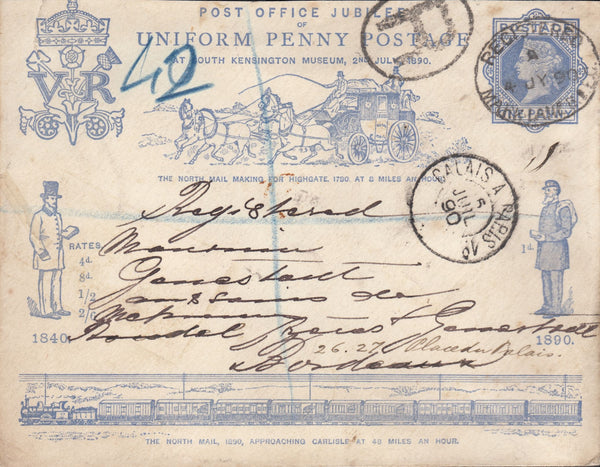 POST OFFICE JUBILEE
OF
UNIFORM PENNY POSTAGE
AT SOUTH KENSINGTON MUSEUM, 2ND JULY, 1890.
V R
42
R
REGISTERED
4 JY 90
THE NORTH MAIL MAKING FOR HIGHGATE, 1790, AT 8 MILES AN HOUR.
CALAIS A PARIS
5
JUIL
90
Registered
RATES
4d.
8d.
1/2
2/6
1d.
Monsieur
Genestedt
1840.
1890.
frères & Genestedt
26.27 Place du Palais.
Bordeaux
THE NORTH MAIL, 1890, APPROACHING CARLISLE AT 48 MILES AN HOUR.